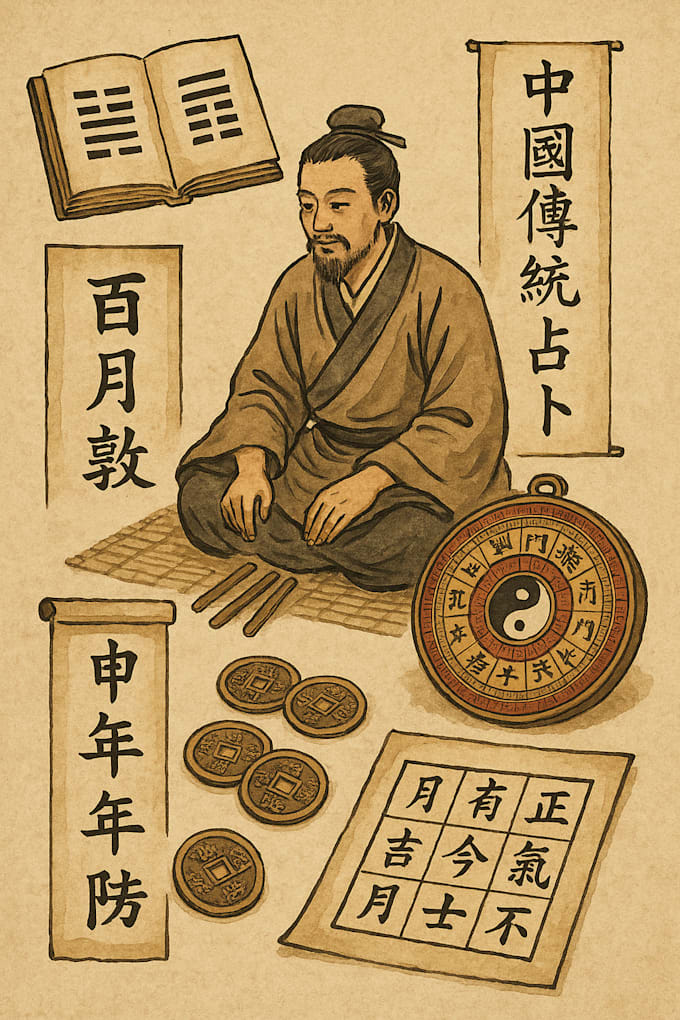 中國傳統占卜
百月敦
申年年
月有正
吉今氣
月士不
門